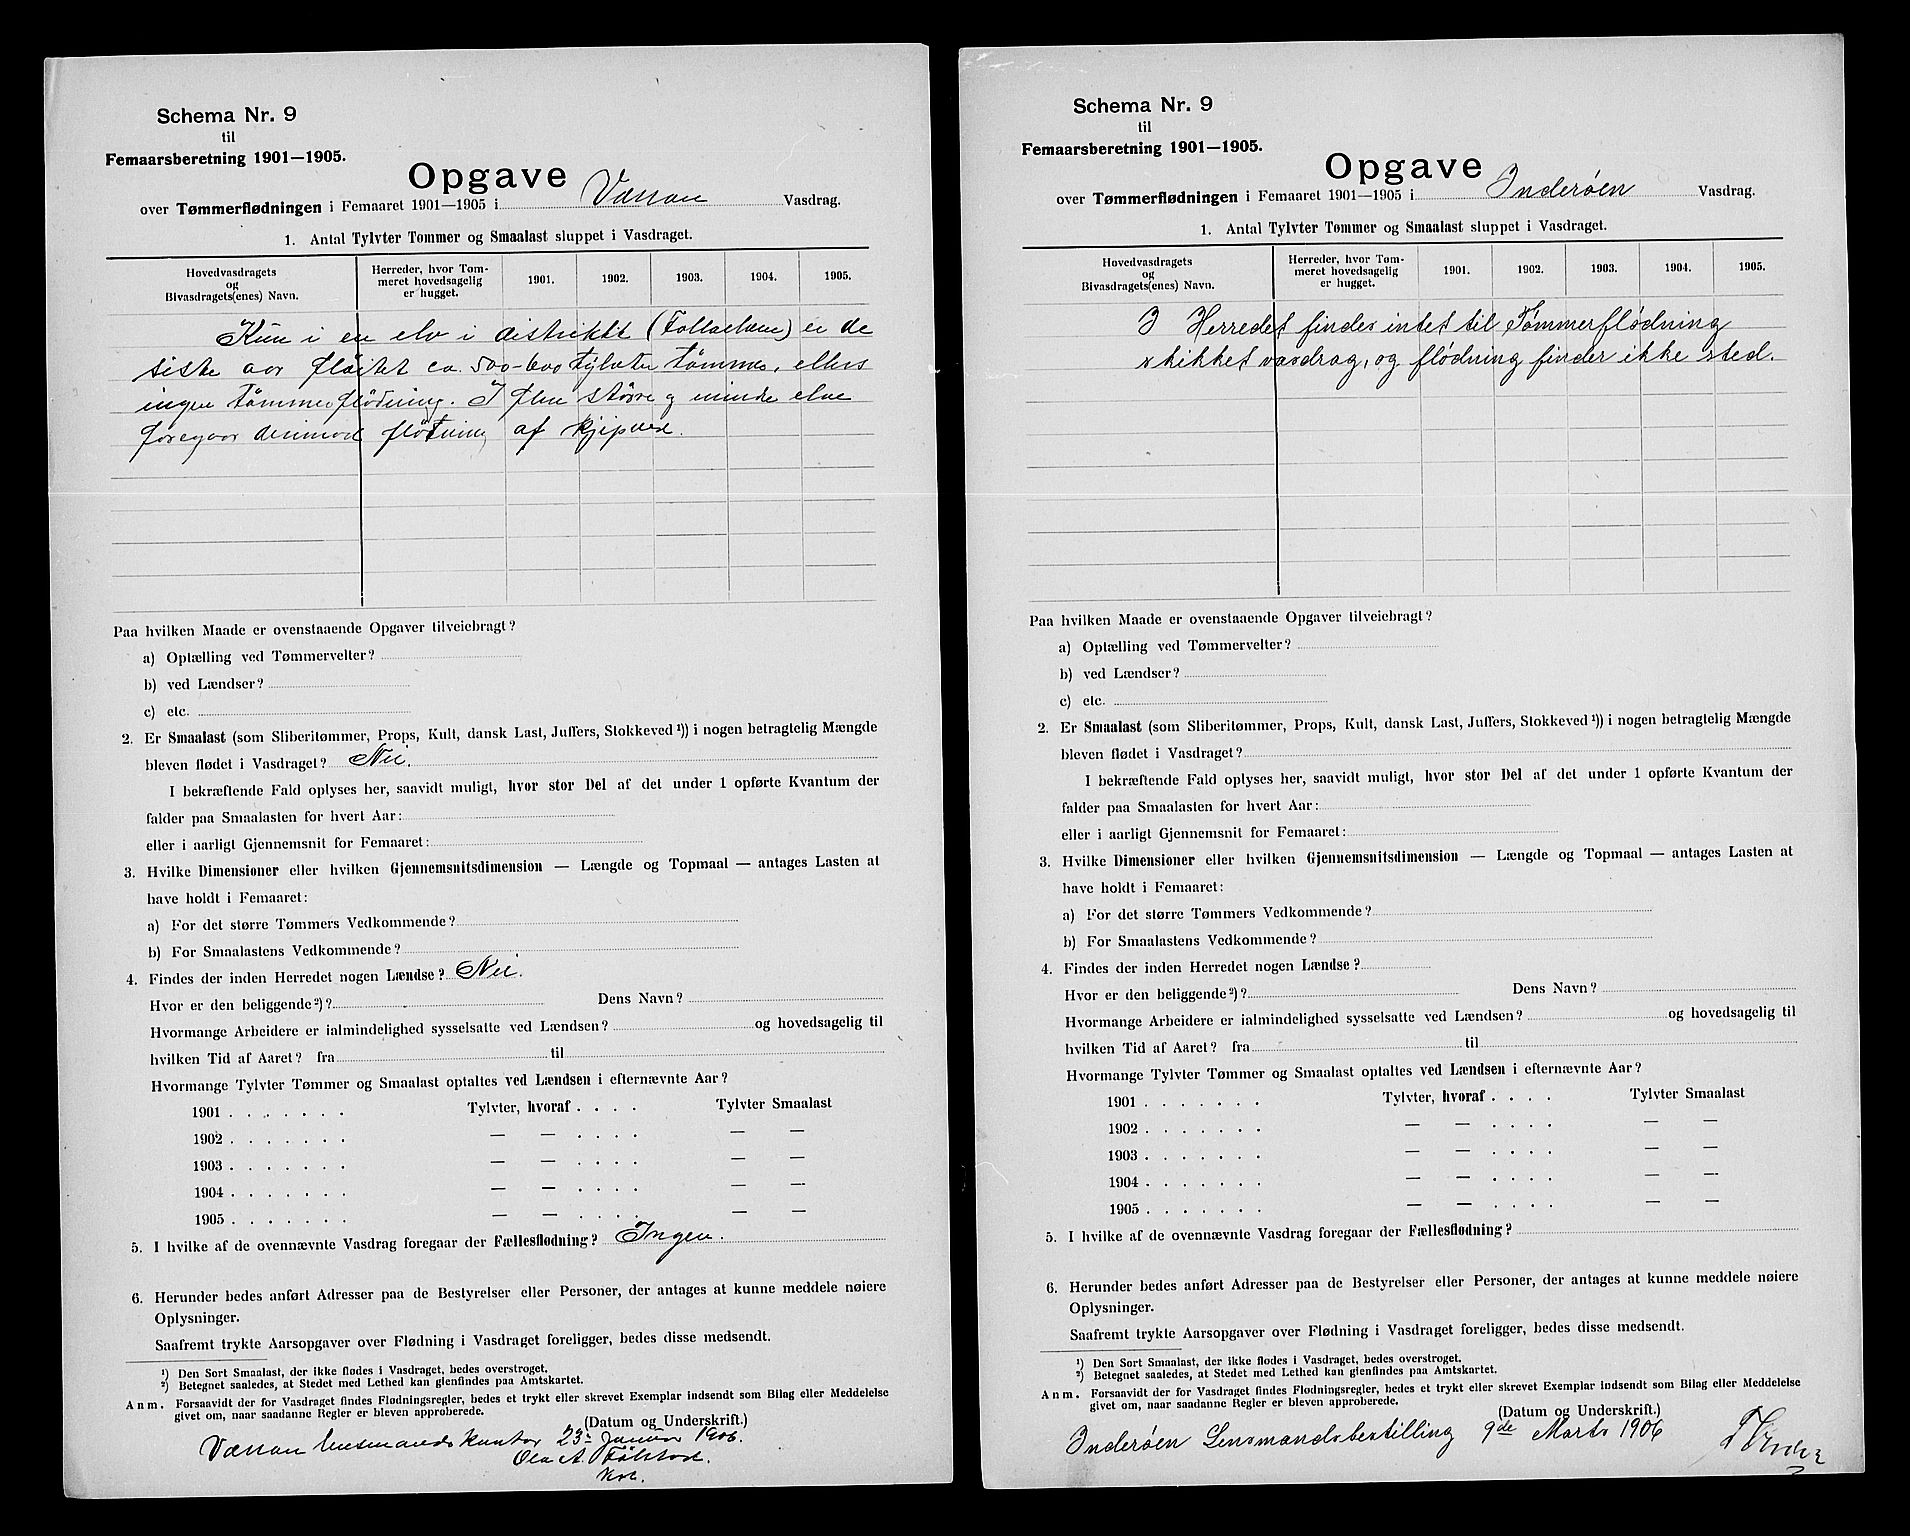 Schema Nr. 9
til
Femaarsberetning 1901—1905.
Opgave
over Tømmerflødningen i Femaaret 1901—1905 i Værran Vasdrag.
1. Antal Tylvter Tømmer og Smaalast sluppet i Vasdraget.
Hovedvasdragets og Bivasdragets(enes) Navn.
Herreder, hvor Tømmeret hovedsagelig er hugget.
1901. 1902. 1903. 1904. 1905.
Kun i en elv i distriktet (Follaelven) er de
siste aar fløitet ca. 500-600 tylvter tømmer, ellers
ingen tømmerflødning. I flere større og mindre elve
foregaar derimod flødning af kjipved.
Paa hvilken Maade er ovenstaaende Opgaver tilveiebragt?
a) Optælling ved Tømmervelter?
b) ved Lændser?
c) etc.
2. Er Smaalast (som Sliberitømmer, Props, Kult, dansk Last, Juffers, Stokkeved ¹)) i nogen betragtelig Mængde
bleven flødet i Vasdraget? Nei.
I bekræftende Fald oplyses her, saavidt muligt, hvor stor Del af det under 1 opførte Kvantum der
falder paa Smaalasten for hvert Aar:
eller i aarligt Gjennemsnit for Femaaret:
3. Hvilke Dimensioner eller hvilken Gjennemsnitsdimension — Længde og Topmaal — antages Lasten at
have holdt i Femaaret:
a) For det større Tømmers Vedkommende?
b) For Smaalastens Vedkommende?
4. Findes der inden Herredet nogen Lændse? Nei.
Hvor er den beliggende ²)? Dens Navn?
Hvormange Arbeidere er ialmindelighed sysselsatte ved Lændsen? og hovedsagelig til
hvilken Tid af Aaret? fra til
Hvormange Tylvter Tømmer og Smaalast optaltes ved Lændsen i efternævnte Aar?
1901 . . . . . . . Tylvter, hvoraf . . . . Tylvter Smaalast
1902 . . . . . . . — — . . . . — —
1903 . . . . . . . — — . . . . — —
1904 . . . . . . . — — . . . . — —
1905 . . . . . . . — — . . . . — —
5. I hvilke af de ovennævnte Vasdrag foregaar der Fællesflødning? Ingen.
6. Herunder bedes anført Adresser paa de Bestyrelser eller Personer, der antages at kunne meddele nøiere
Oplysninger.
Saafremt trykte Aarsopgaver over Flødning i Vasdraget foreligger, bedes disse medsendt.
¹) Den Sort Smaalast, der ikke flødes i Vasdraget, bedes overstroget.
²) Betegnet saaledes, at Stedet med Lethed kan gienfindes paa Amtskartet.
Anm. Forsaavidt der for Vasdraget findes Flødningsregler, bedes et trykt eller skrevet Exemplar indsendt som Bilag eller Meddelelse
givet om, naar saadanne Regler er bleven approberede.
(Datum og Underskrift.)
Værran lensmandskontor 23. Januar 1906.
Ola A.
Schema Nr. 9
til
Femaarsberetning 1901—1905.
Opgave
over Tømmerflødningen i Femaaret 1901—1905 i Inderøen Vasdrag.
1. Antal Tylvter Tømmer og Smaalast sluppet i Vasdraget.
Hovedvasdragets og Bivasdragets(enes) Navn.
Herreder, hvor Tømmeret hovedsagelig er hugget.
1901. 1902. 1903. 1904. 1905.
I Herredet findes intet til Tømmerflødning
skikket vasdrag, og flødning finder ikke sted.
Paa hvilken Maade er ovenstaaende Opgaver tilveiebragt?
a) Optælling ved Tømmervelter?
b) ved Lændser?
c) etc.
2. Er Smaalast (som Sliberitømmer, Props, Kult, dansk Last, Juffers, Stokkeved ¹)) i nogen betragtelig Mængde
bleven flødet i Vasdraget?
I bekræftende Fald oplyses her, saavidt muligt, hvor stor Del af det under 1 opførte Kvantum der
falder paa Smaalasten for hvert Aar:
eller i aarligt Gjennemsnit for Femaaret:
3. Hvilke Dimensioner eller hvilken Gjennemsnitsdimension — Længde og Topmaal — antages Lasten at
have holdt i Femaaret:
a) For det større Tømmers Vedkommende?
b) For Smaalastens Vedkommende?
4. Findes der inden Herredet nogen Lændse?
Hvor er den beliggende ²)? Dens Navn?
Hvormange Arbeidere er ialmindelighed sysselsatte ved Lændsen? og hovedsagelig til
hvilken Tid af Aaret? fra til
Hvormange Tylvter Tømmer og Smaalast optaltes ved Lændsen i efternævnte Aar?
1901 . . . . . . . Tylvter, hvoraf . . . . Tylvter Smaalast
1902 . . . . . . . — — . . . . — —
1903 . . . . . . . — — . . . . — —
1904 . . . . . . . — — . . . . — —
1905 . . . . . . . — — . . . . — —
5. I hvilke af de ovennævnte Vasdrag foregaar der Fællesflødning?
6. Herunder bedes anført Adresser paa de Bestyrelser eller Personer, der antages at kunne meddele nøiere
Oplysninger.
Saafremt trykte Aarsopgaver over Flødning i Vasdraget foreligger, bedes disse medsendt.
¹) Den Sort Smaalast, der ikke flødes i Vasdraget, bedes overstroget.
²) Betegnet saaledes, at Stedet med Lethed kan gienfindes paa Amtskartet.
Anm. Forsaavidt der for Vasdraget findes Flødningsregler, bedes et trykt eller skrevet Exemplar indsendt som Bilag eller Meddelelse
givet om, naar saadanne Regler er bleven approberede.
(Datum og Underskrift.)
Inderøen Lensmandsbestilling 9de Marts 1906